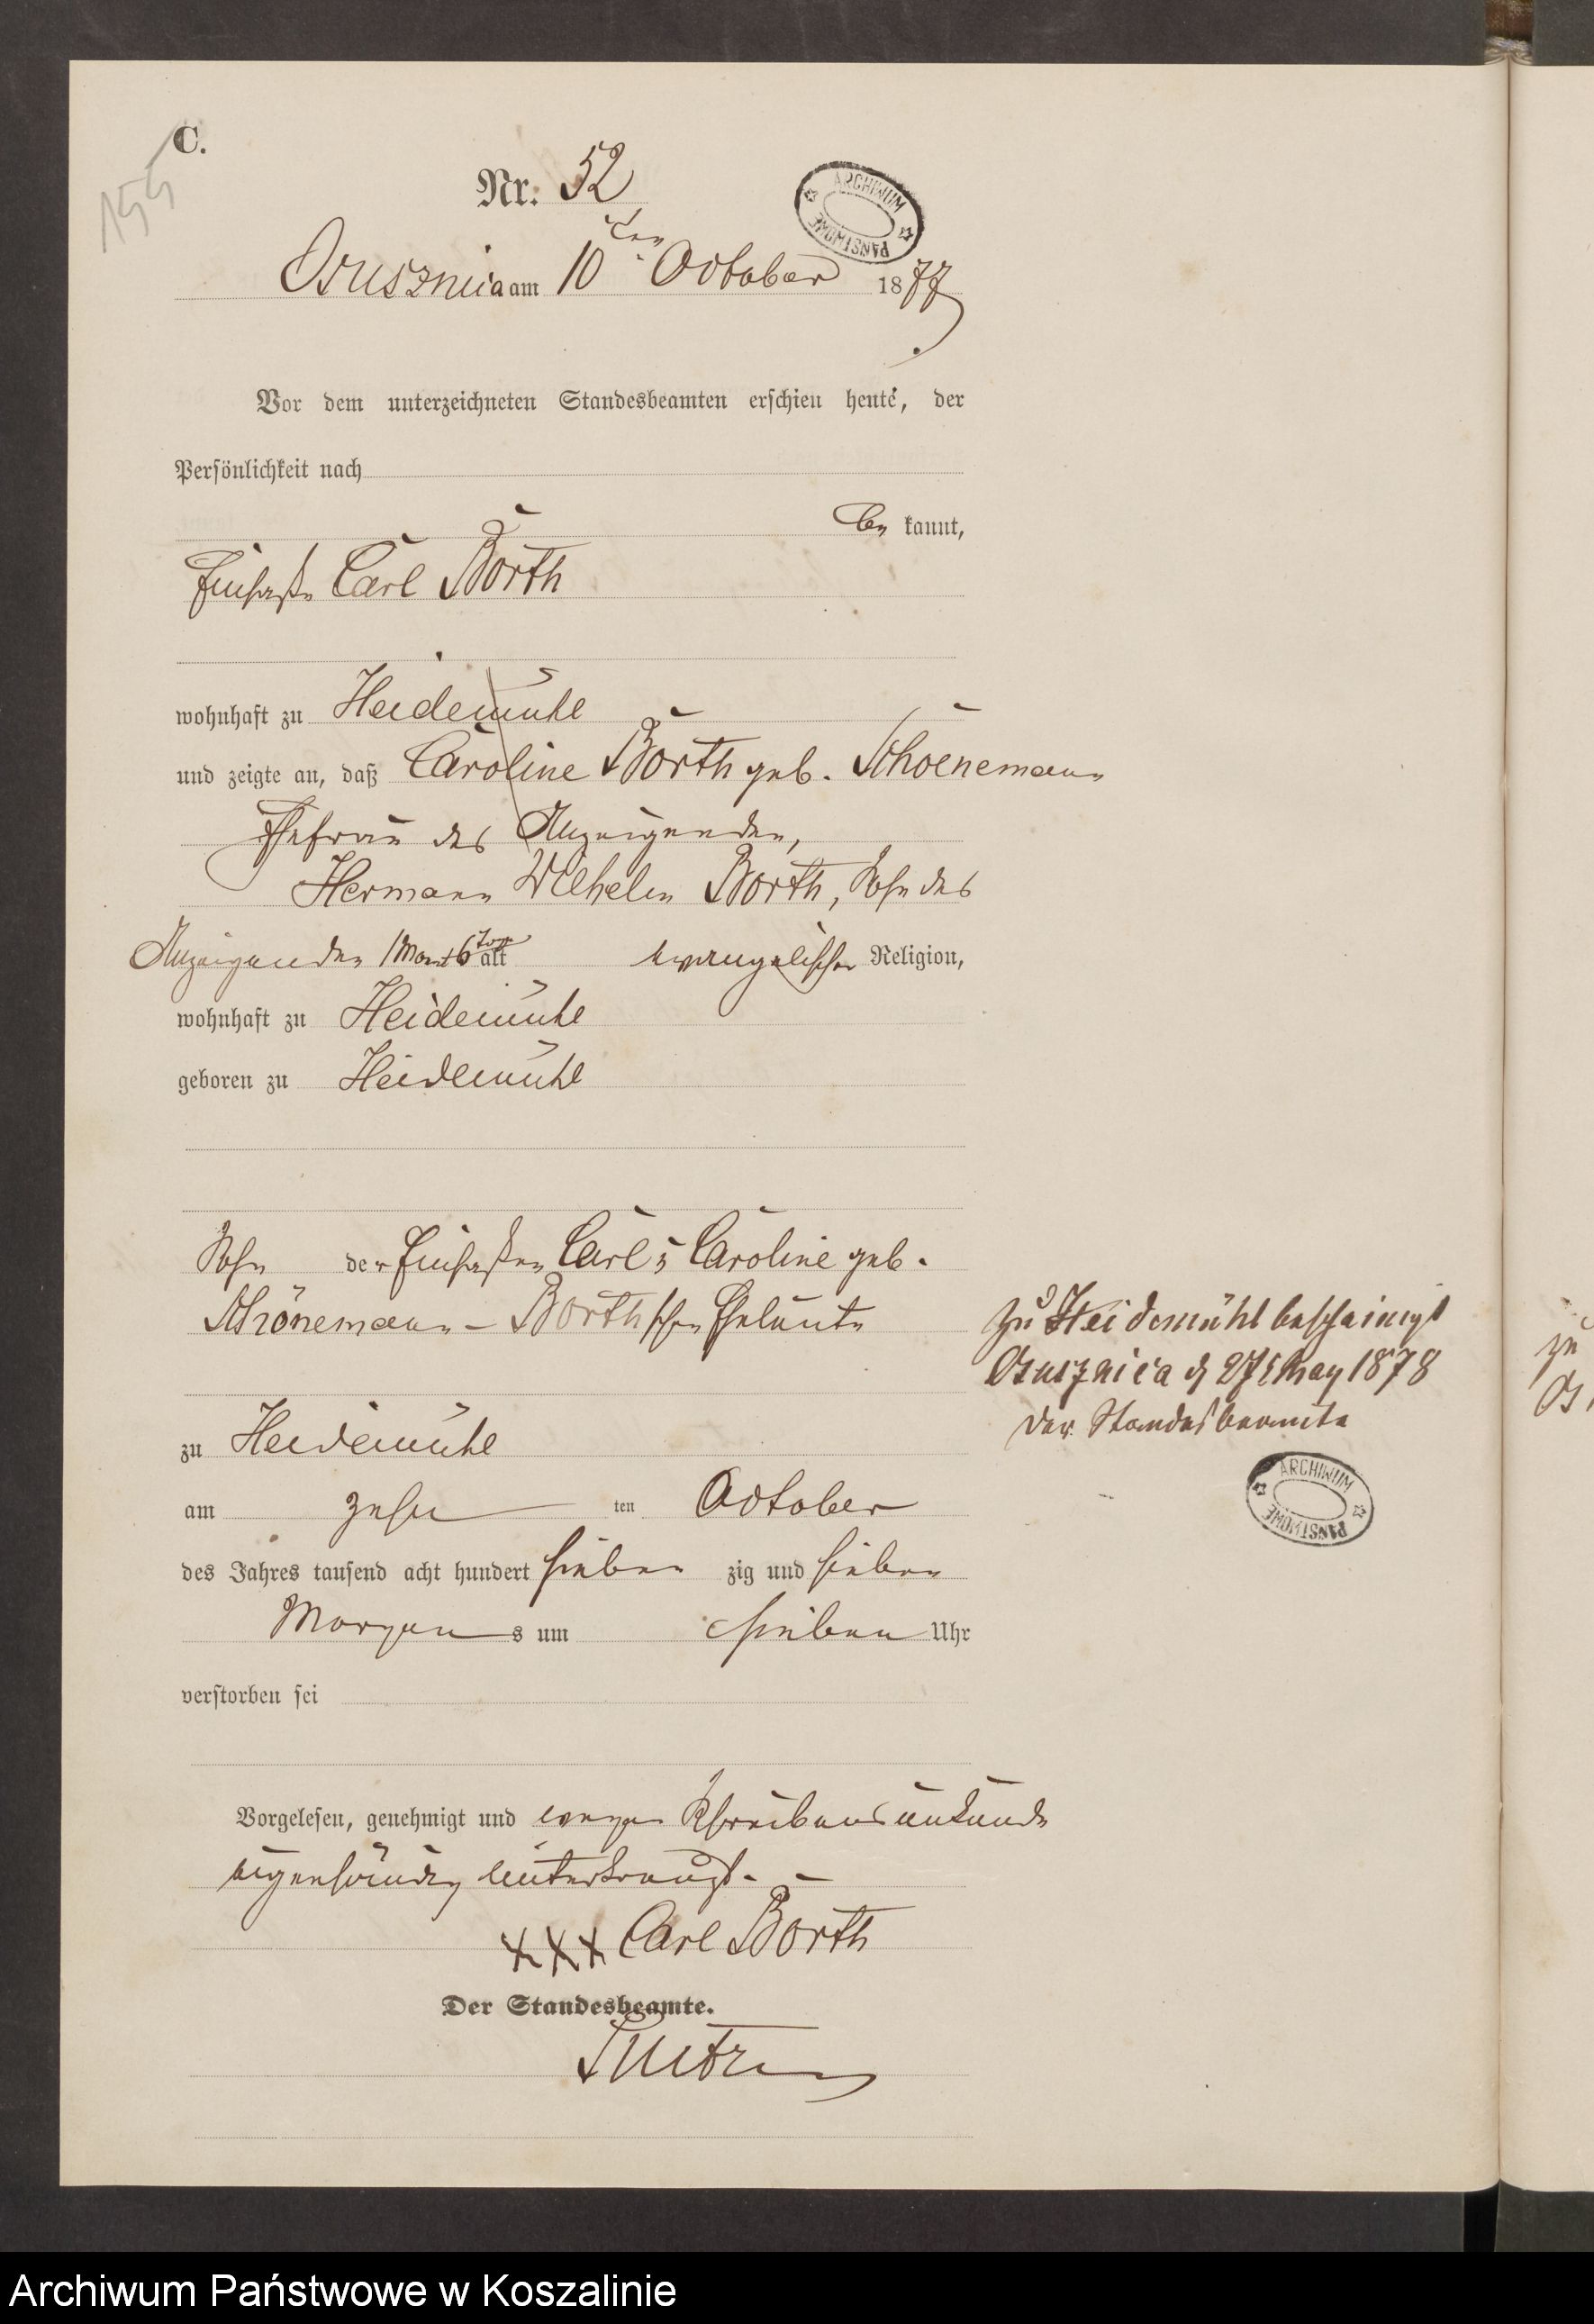 C.
155
Nr. 52
ARCHIWUM PAŃSTWOWE
Osusznica am 10ten October 1877
Vor dem unterzeichneten Standesbeamten erschien heute, der
Persönlichkeit nach
be kannt,
Einsaße Carl Borth
wohnhaft zu Heidemühl
und zeigte an, daß Caroline Borth geb. Schoenemann
Ehefrau des Anzeigenden,
Hermann Wilhelm Borth, Sohn des
Anzeigenden 1 Monat 6 Tage alt evangelischer Religion,
wohnhaft zu Heidemühl
geboren zu Heidemühl
Sohn der Einsaßen Carl u Caroline geb.
Schönemann - Borthschen Eheleute
zu Heidemühl bescheinigt
Osusznica d 27 May 1878
Der Standesbeamte
ARCHIWUM PAŃSTWOWE
zu Heidemühl
am zehn ten October
des Jahres tausend acht hundert sieben zig und sieben
Morgen s um sieben Uhr
verstorben sei
Vorgelesen, genehmigt und wegen Schreibensunkunde
eigenhändig unterkreuzt.
XXX Carl Borth
Der Standesbeamte.
zu
Archiwum Państwowe w Koszalinie